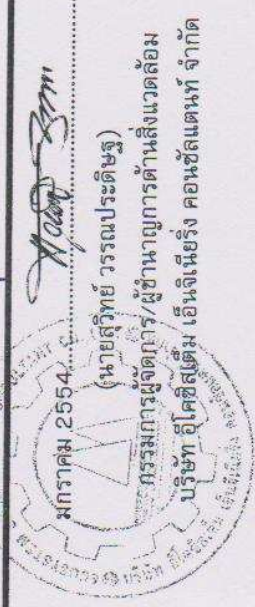 มกราคม 2554
(นายสุวิทย์ วรรณประดิษฐ)
กรรมการผู้จัดการ/ผู้ชำนาญการด้านสิ่งแวดล้อม
บริษัท อีโคซิสเต็ม เอ็นจิเนียริ่ง คอนซัลแตนท์ จำกัด